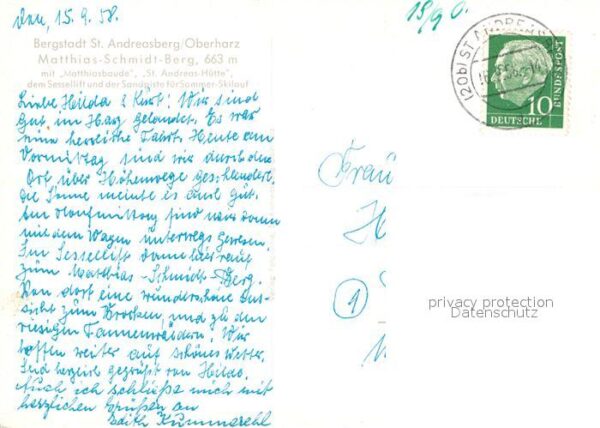 den, 15.9.58.
Bergstadt St. Andreasberg/Oberharz
Matthias-Schmidt-Berg, 663 m
mit „Matthiasbaude", „St. Andreas-Hütte",
dem Sessellift und der Sandpiste für Sommer-Skilauf
Liebe Hilda & Kurt! Wir sind
gut im Harz gelandet. Es war
eine herrliche Fahrt. Heute am
Vormittag sind wir durch den
Ort über Höhenwege geschlendert.
Die Sonne meinte es auch gut.
Am Nachmittag sind wir dann
mit dem Wagen unterwegs gewesen.
Im Sessellift dann herauf
zum Matthias-Schmidt-Berg.
Von dort eine wunderschöne Aus-
sicht zum Brocken, und zu den
riesigen Tannenwäldern. Wir
hoffen weiter auf schönes Wetter.
Seid herzlich gegrüßt von Hilde.
Auch ich schließe mich mit
herzlichen Grüßen an
Edith
15/9 0.
(20b) ST ANDREAS
10
DEUTSCHE
BUNDESPOST
Frau
H
1
privacy protection
Datenschutz